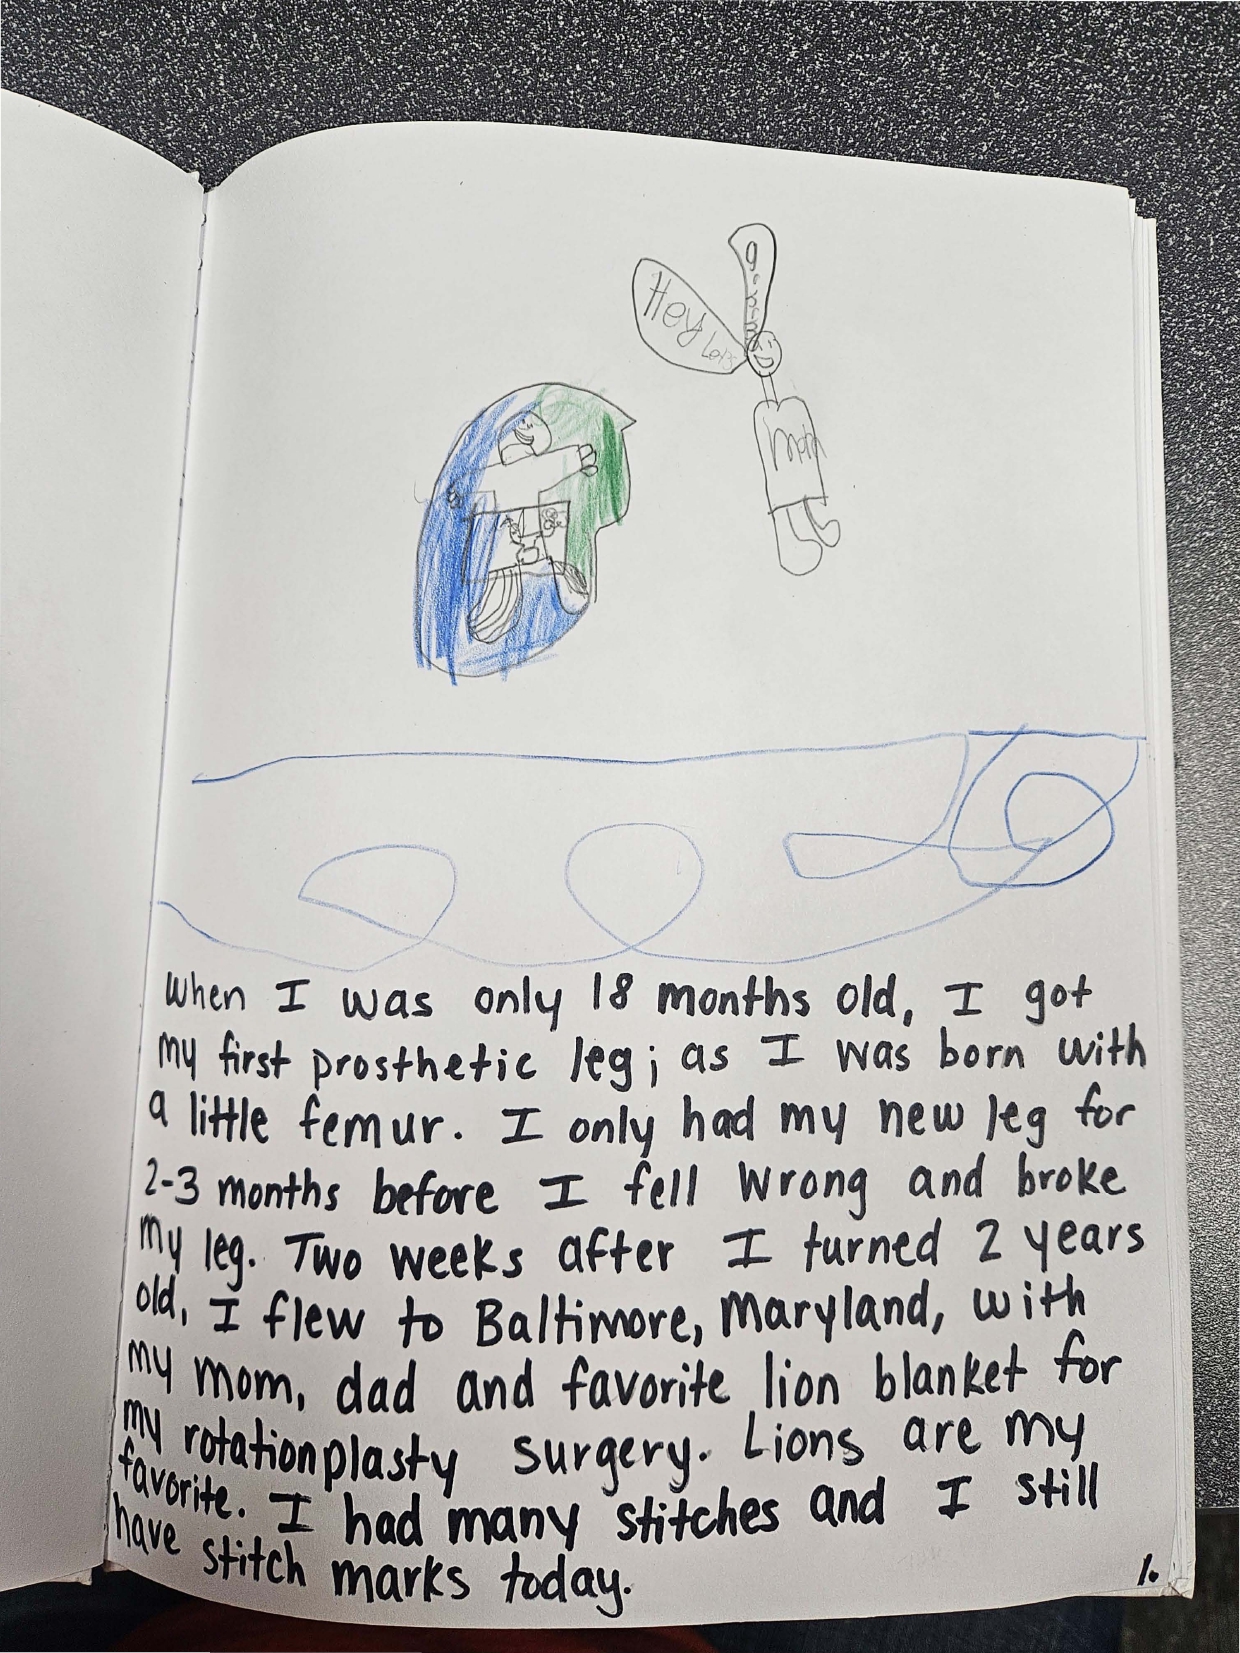 Hey
When I was only 18 months old, I got
my first prosthetic leg; as I was born with
a little femur. I only had my new leg for
2-3 months before I fell wrong and broke
my leg. Two weeks after I turned 2 years
old, I flew to Baltimore, Maryland, with
my mom, dad and favorite lion blanket for
my rotationplasty surgery. Lions are my
favorite. I had many stitches and I still
have stitch marks today.
1.